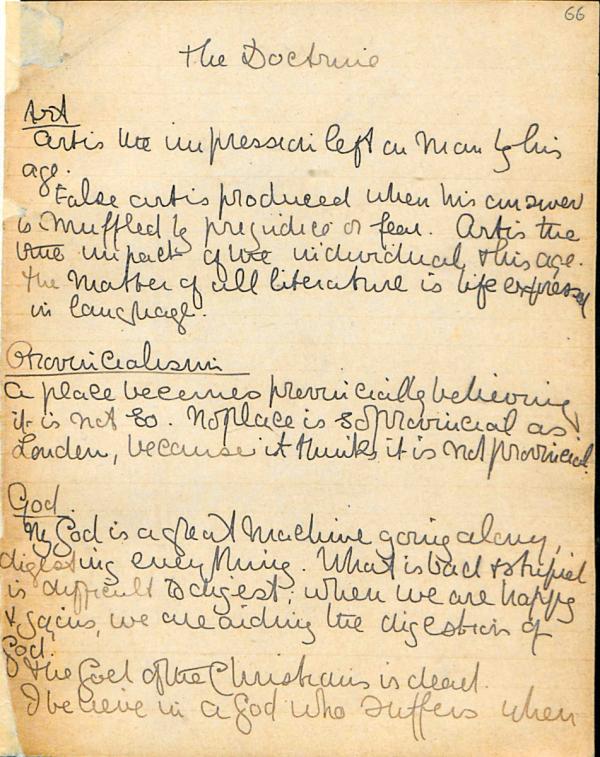 66
The Doctrine
Art
Art is the impression left on Man by his
age.
False art is produced when his answer
is muffled by prejudice or fear. Art is the
true impact of the individual & his age.
The Matter of all literature is life expressed
in language.
Provincialism
A place becomes provincial by believing
it is not so. No place is so provincial as
London, because it thinks it is not provincial.
God.
My God is a great Machine going along,
digesting everything. What is bad & stupid
is difficult to digest; when we are happy
& we are aiding the digestion of
God.
The God of the Christians is dead.
I believe in a God who suffers when